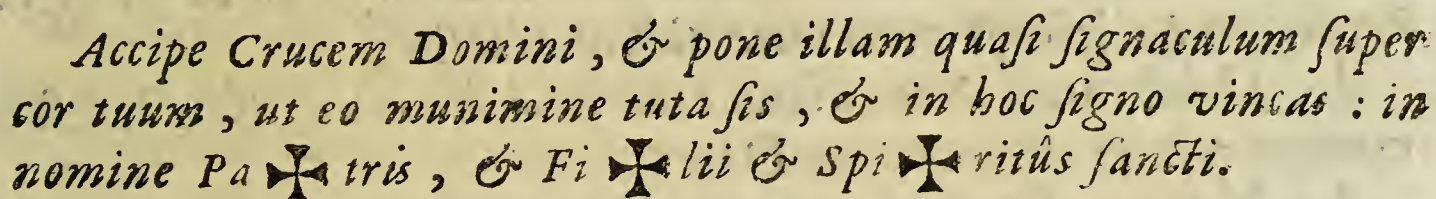 Accipe Crucem Domini, & pone illam quaſi ſignaculum ſuper
cor tuum, ut eo munimine tuta ſis, & in hoc ſigno vincas: in
nomine Pa ✠ tris, & Fi ✠ lii & Spi ✠ ritûs ſancti.